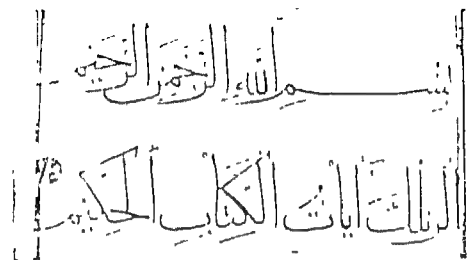 بسم الله الرحمن الرحيم
الر تلك ايات الكتاب الحكيم